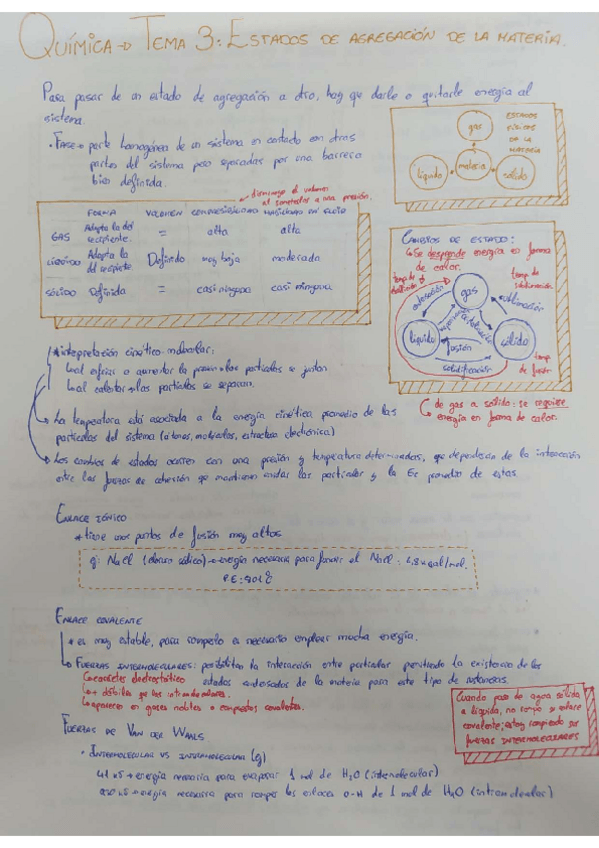 QUÍMICA → TEMA 3: ESTADOS DE AGREGACIÓN DE LA MATERIA.
Para pasar de un estado de agregación a otro, hay que darle o quitarle energía al
sistema.
• FASE → parte homogénea de un sistema en contacto con otras
partes del sistema pero separadas por una barrera
bien definida.
ESTADOS
FÍSICOS
DE LA
MATERIA
gas
materia
líquido
sólido
disminuye el volumen
al someterlo a una presión.
FORMA VOLUMEN COMPRESIBILIDAD
GAS Adopta la del recipiente. = alta alta
LÍQUIDO Adopta la del recipiente Definido muy baja moderada
SÓLIDO Definida = casi ninguna casi ninguna
CAMBIOS DE ESTADO:
↳ Se desprende energía en forma
de calor.
temp de
temp de
sublimación
gas
sublimación
líquido
sólido
fusión
solidificación
temp
de fusión
de gas a sólido: se requiere
energía en forma de calor.
* interpretación cinético-molecular:
↳ al enfriar o aumentar la presión → las partículas se juntan
↳ al calentar → las partículas se separan.
→ La temperatura está asociada a la energía cinética promedio de las
partículas del sistema (átomos, moléculas, estructura electrónica)
→ Los cambios de estados ocurren con una presión y temperatura determinadas, que dependerán de la interacción
entre las fuerzas de cohesión que mantienen unidas las partículas y la Ec promedio de estas.
ENLACE IÓNICO
* tiene unos puntos de fusión muy altos
ej: NaCl (cloruro sódico) → energía necesaria para fundir el NaCl: 6,8 kcal/mol.
: 801 ℃
ENLACE COVALENTE
* es muy estable, para romperlo es necesario emplear mucha energía.
↳ FUERZAS INTERMOLECULARES: posibilitan la interacción entre partículas permitiendo la existencia de los
estados condensados de la materia para este tipo de sustancias.
↳ carácter electrostático
↳ + débiles que las intramoleculares.
↳ aparecen en gases nobles o compuestos covalentes.
Cuando paso de agua sólida
a líquida, no rompo su enlace
covalente; estoy rompiendo sus
FUERZAS INTERMOLECULARES
FUERZAS DE VAN DER WAALS
• INTERMOLECULAR VS INTRAMOLECULAR (ej)
41 kJ → energía necesaria para evaporar 1 mol de H₂O (intermolecular)
930 kJ → energía necesaria para romper los enlaces O-H de 1 mol de H₂O (intramolecular)